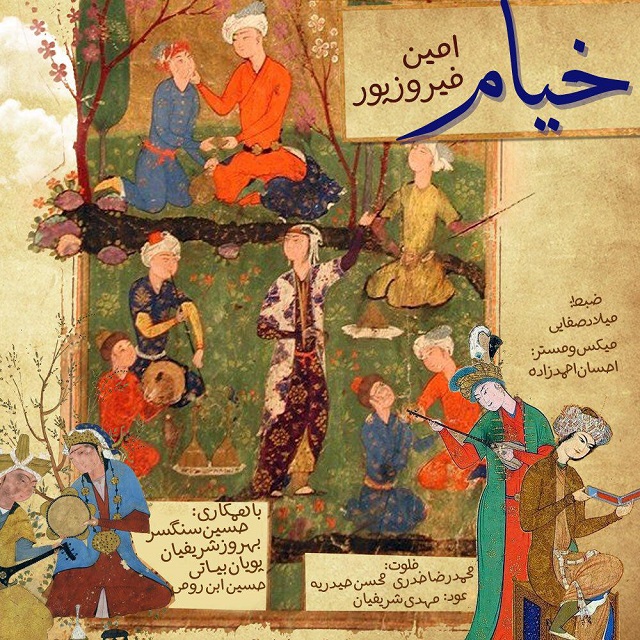 خیام
امین
فیروزپور
ضبط:
میلاد صفایی
میکس و مستر:
احسان احمدزاده
با همکاری:
حسین سنگسر
بهروز شریفیان
پویان بیاتی
حسین ابن رومی
فلوت:
محمدرضا صدری محسن حیدریه
عود: مهدی شریفیان